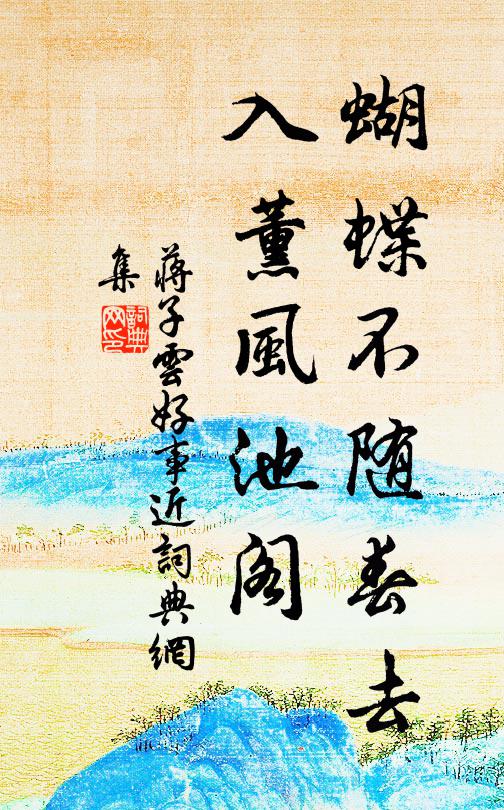 蝴蝶不随春去
入薰風池阁
蒋子雲好事近詞典網
集
詞典
网印